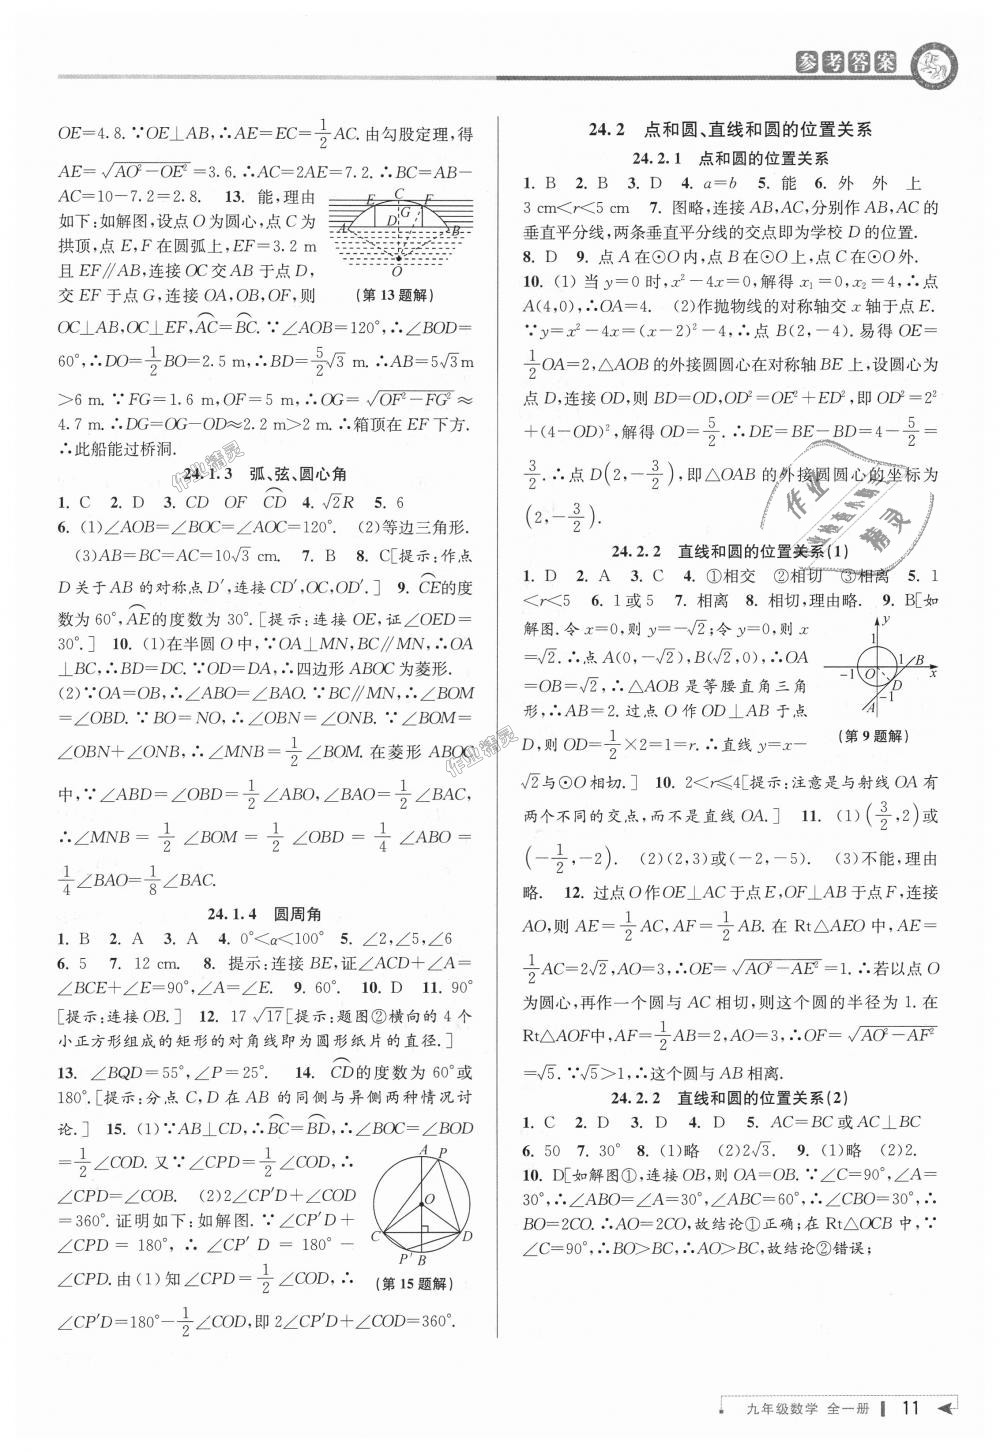 参考答案
OE=4.8.∵OE⊥AB,∴AE=EC=1/2AC.由勾股定理,得
AE=√(AO²-OE²)=3.6.∴AC=2AE=7.2.∴BC=AB-
AC=10-7.2=2.8. 13. 能,理由
如下:如解图,设点O为圆心,点C为
拱顶,点E,F在圆弧上,EF=3.2 m
且EF∥AB,连接OC交AB于点D,
交EF于点G,连接OA,OB,OF,则
(第13题解)
OC⊥AB,OC⊥EF,AC⌒=BC⌒.∵∠AOB=120°,∴∠BOD=
60°,∴DO=1/2BO=2.5 m.∴BD=5/2√3 m.∴AB=5√3 m
>6 m.∵FG=1.6 m,OF=5 m,∴OG=√(OF²-FG²)≈
4.7 m.∴DG=OG-OD≈2.2 m>2 m.∴箱顶在EF下方.
∴此船能过桥洞.
24.1.3 弧、弦、圆心角
1. C 2. D 3. CD OF CD⌒ 4. √2R 5. 6
6. (1)∠AOB=∠BOC=∠AOC=120°. (2)等边三角形.
(3)AB=BC=AC=10√3 cm. 7. B 8. C[提示:作点
D关于AB的对称点D′,连接CD′,OC,OD′.] 9. CE⌒的度
数为60°,AE⌒的度数为30°.[提示:连接OE,证∠OED=
30°.] 10. (1)在半圆O中,∵OA⊥MN,BC∥MN,∴OA
⊥BC,∴BD=DC.∵OD=DA,∴四边形ABOC为菱形.
(2)∵OA=OB,∴∠ABO=∠BAO.∵BC∥MN,∴∠BOM
=∠OBD.∵BO=NO,∴∠OBN=∠ONB.∵∠BOM=
∠OBN+∠ONB,∴∠MNB=1/2∠BOM.在菱形ABOC
中,∵∠ABD=∠OBD=1/2∠ABO,∠BAO=1/2∠BAC,
∴∠MNB=1/2∠BOM=1/2∠OBD=1/4∠ABO=
1/4∠BAO=1/8∠BAC.
24.1.4 圆周角
1. B 2. A 3. A 4. 0°<α<100° 5. ∠2,∠5,∠6
6. 5 7. 12 cm. 8. 提示:连接BE,证∠ACD+∠A=
∠BCE+∠E=90°,∠A=∠E. 9. 60°. 10. D 11. 90°
[提示:连接OB.] 12. 17 √17[提示:题图②横向的4个
小正方形组成的矩形的对角线即为圆形纸片的直径.]
13. ∠BQD=55°,∠P=25°. 14. CD⌒的度数为60°或
180°.[提示:分点C,D在AB的同侧与异侧两种情况讨
论.] 15. (1)∵AB⊥CD,∴BC⌒=BD⌒,∴∠BOC=∠BOD
=1/2∠COD.又∵∠CPD=1/2∠COD,∴
∠CPD=∠COB. (2)2∠CP′D+∠COD
=360°.证明如下:如解图.∵∠CP′D+
∠CPD=180°,∴∠CP′D=180°-
∠CPD.由(1)知∠CPD=1/2∠COD,∴
(第15题解)
∠CP′D=180°-1/2∠COD,即2∠CP′D+∠COD=360°.
24.2 点和圆、直线和圆的位置关系
24.2.1 点和圆的位置关系
1. B 2. B 3. D 4. a=b 5. 能 6. 外 外 上
3 cm<r<5 cm 7. 图略,连接AB,AC,分别作AB,AC的
垂直平分线,两条垂直平分线的交点即为学校D的位置.
8. D 9. 点A在⊙O内,点B在⊙O上,点C在⊙O外.
10. (1)当y=0时,x²-4x=0,解得x₁=0,x₂=4,∴点
A(4,0),∴OA=4. (2)作抛物线的对称轴交x轴于点E.
∵y=x²-4x=(x-2)²-4,∴点B(2,-4).易得OE=
1/2OA=2,△AOB的外接圆圆心在对称轴BE上,设圆心为
点D,连接OD,则BD=OD,OD²=OE²+ED²,即OD²=2²
+(4-OD)²,解得OD=5/2.∴DE=BE-BD=4-5/2=
3/2.∴点D(2,-3/2),即△OAB的外接圆圆心的坐标为
(2,-3/2).
24.2.2 直线和圆的位置关系(1)
1. D 2. A 3. C 4. ①相交 ②相切 ③相离 5. 1
<r<5 6. 1或5 7. 相离 8. 相切,理由略. 9. B[如
解图.令x=0,则y=-√2;令y=0,则x
=√2.∴点A(0,-√2),B(√2,0),∴OA
=OB=√2,∴△AOB是等腰直角三角
形,∴AB=2.过点O作OD⊥AB于点
(第9题解)
D,则OD=1/2×2=1=r.∴直线y=x-
√2与⊙O相切.] 10. 2<r≤4[提示:注意是与射线OA有
两个不同的交点,而不是直线OA.] 11. (1)(3/2,2)或
(-1/2,-2). (2)(2,3)或(-2,-5). (3)不能,理由
略. 12. 过点O作OE⊥AC于点E,OF⊥AB于点F,连接
AO,则AE=1/2AC,AF=1/2AB.在Rt△AEO中,∵AE=
1/2AC=2√2,AO=3,∴OE=√(AO²-AE²)=1.∴若以点O
为圆心,再作一个圆与AC相切,则这个圆的半径为1.在
Rt△AOF中,AF=1/2AB=2,AO=3,∴OF=√(AO²-AF²)
=√5.∵√5>1,∴这个圆与AB相离.
24.2.2 直线和圆的位置关系(2)
1. C 2. D 3. D 4. D 5. AC=BC或AC⊥BC
6. 50 7. 30° 8. (1)略 (2)2√3. 9. (1)略 (2)2.
10. D[如解图①,连接OB,则OA=OB.∵∠C=90°,∠A=
30°,∴∠ABO=∠A=30°,∠ABC=60°,∴∠CBO=30°,∴
BO=2CO.∴AO=2CO,故结论①正确;在Rt△OCB中,∵
∠C=90°,∴BO>BC,∴AO>BC,故结论②错误;
九年级数学 全一册 11